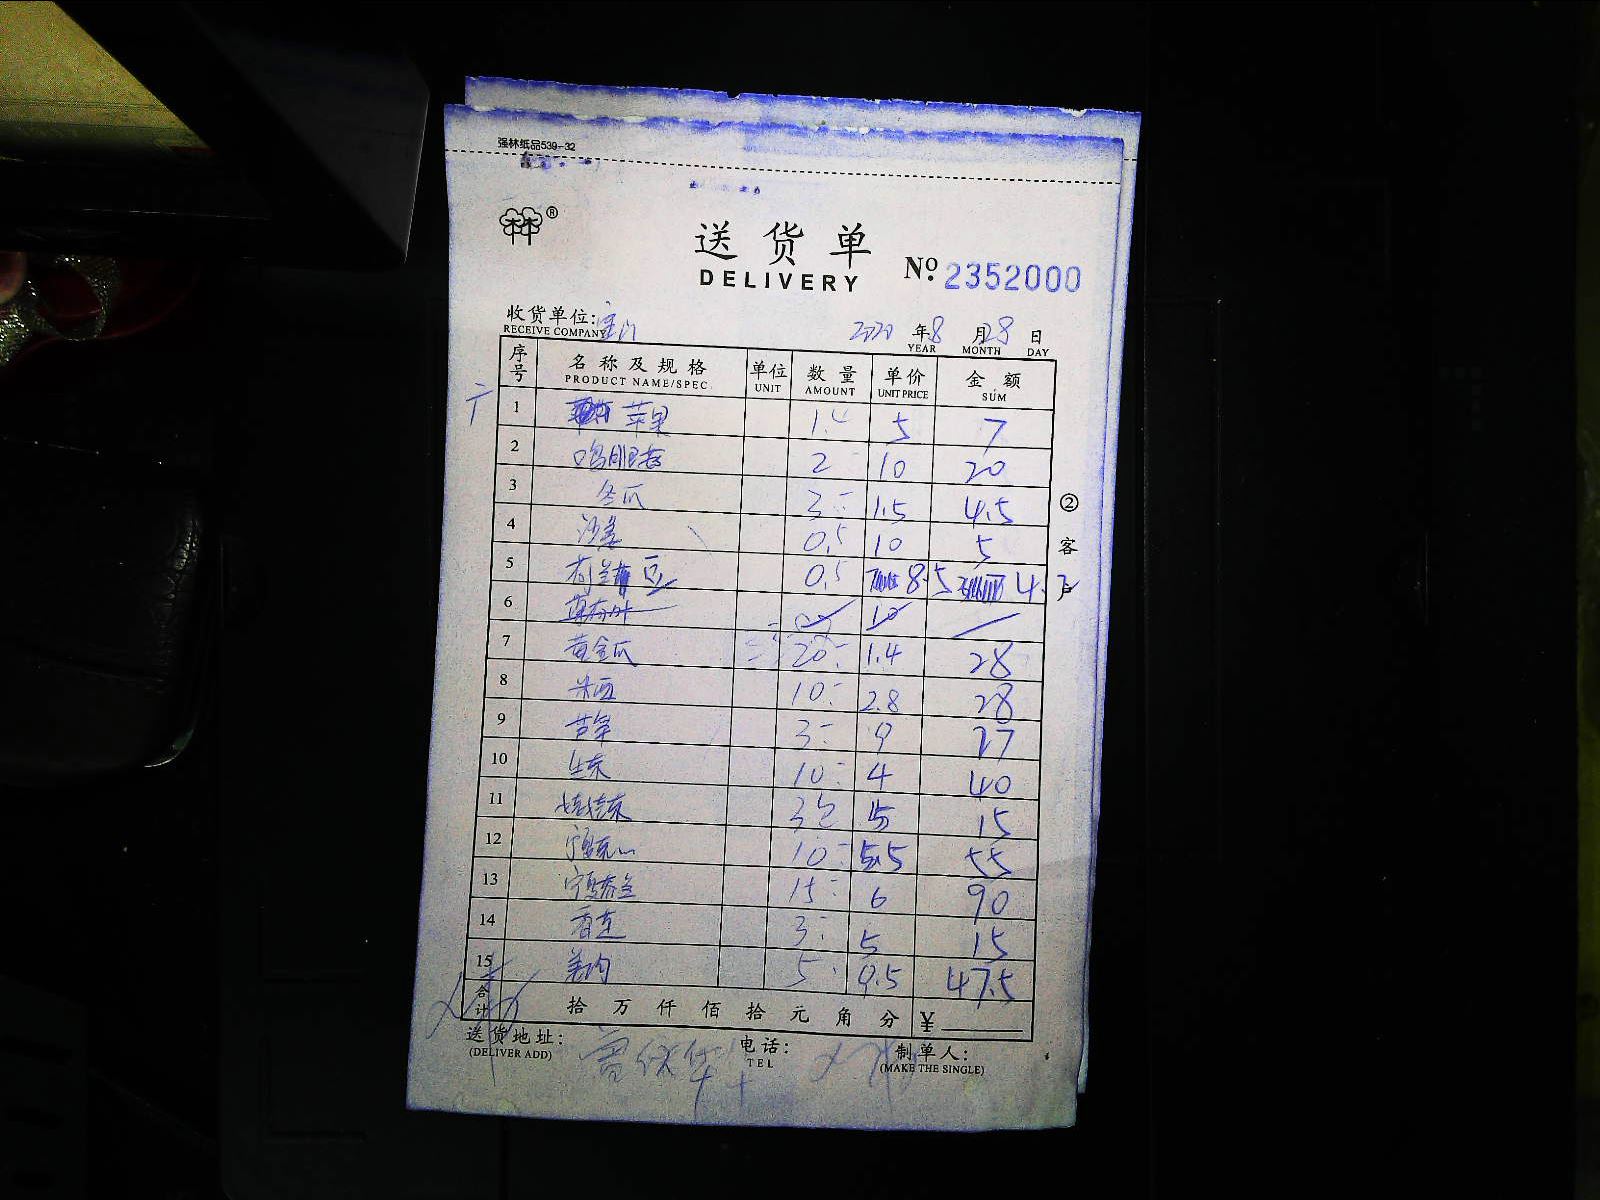 强林纸品539-32
林®
送货单
DELIVERY
No. 2352000
收货单位:
RECEIVE COMPANY
2020 年 8 月 28 日
YEAR MONTH DAY
序号 名称及规格 单位 数量 单价 金额
PRODUCT NAME/SPEC. UNIT AMOUNT UNIT PRICE SUM
1 苹果 1.4 5 7
2 2 10 20
3 冬瓜 3 1.5 4.5
4 沙姜 0.5 10 5
5 荷兰豆 0.5 8.5 4.
6 10
7 黄金瓜 20 1.4 28
8 10 2.8 28
9 3 9 27
10 生菜 10 4 40
11 3包 5 15
12 10 5.5 55
13 15 6 90
14 3 5 15
15 5 9.5 47.5
② 客户
合计 拾万仟佰拾元角分 ¥
送货地址: 电话: 制单人:
(DELIVER ADD) TEL (MAKE THE SINGLE)